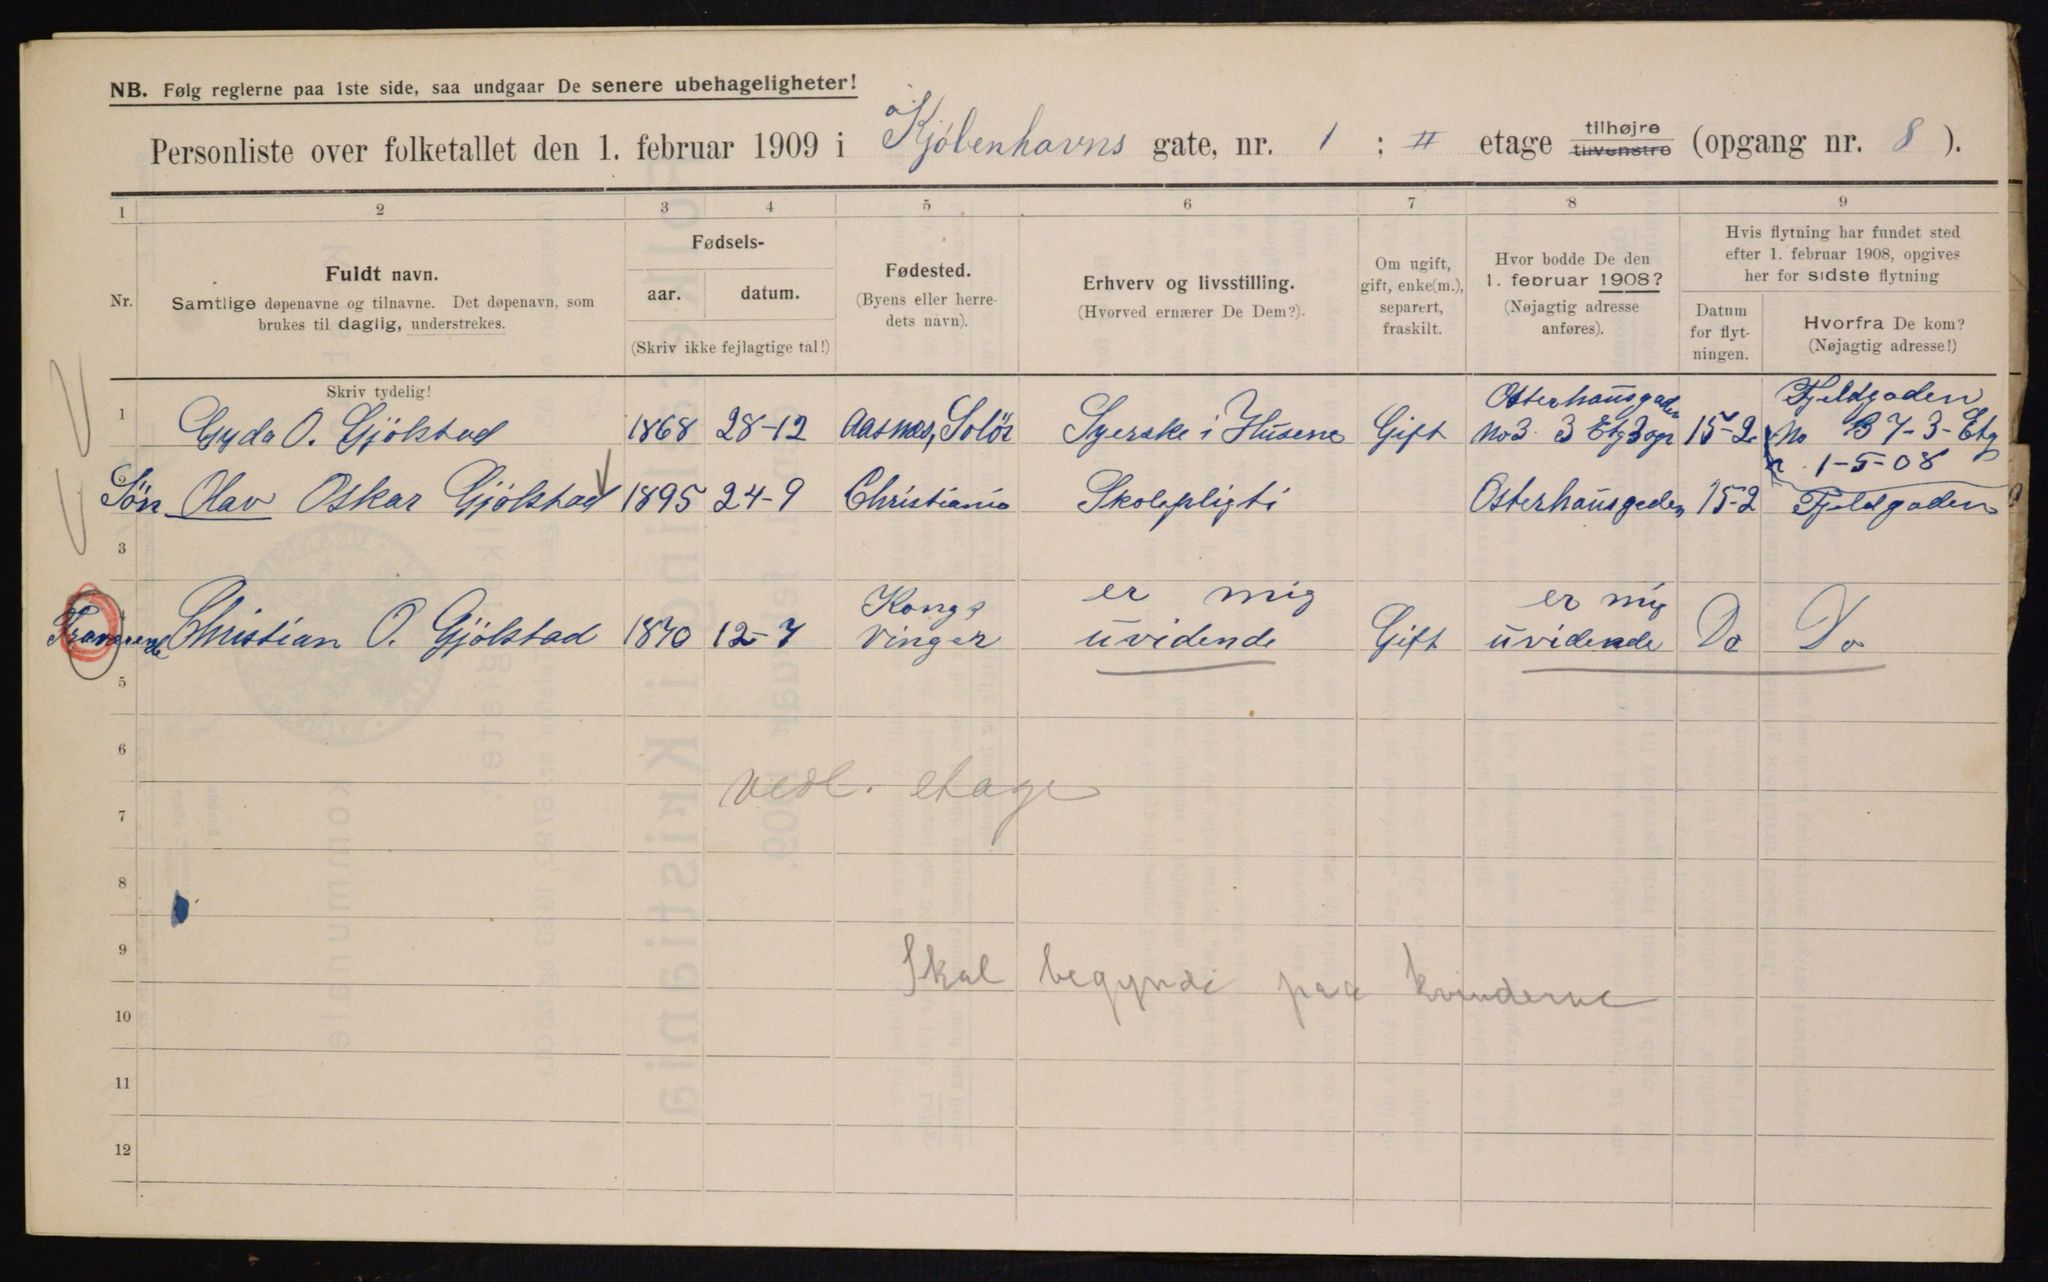 NB. Følg reglerne paa 1ste side, saa undgaar De senere ubehageligheter!
Personliste over folketallet den 1. februar 1909 i Kjöbenhavns gate, nr. 1 ; II etage tilhøjre tilvenstre (opgang nr. 8 ).
1 2 3 4 5 6 7 8 9
Nr.
Fuldt navn.
Samtlige døpenavne og tilnavne. Det døpenavn, som
brukes til daglig, understrekes.
Fødsels-
aar. datum.
(Skriv ikke fejlagtige tal!)
Fødested.
(Byens eller herre-
dets navn).
Erhverv og livsstilling.
(Hvorved ernærer De Dem?).
Om ugift,
gift, enke(m.),
separert,
fraskilt.
Hvor bodde De den
1. februar 1908?
(Nøjagtig adresse
anføres).
Hvis flytning har fundet sted
efter 1. februar 1908, opgives
her for sidste flytning
Datum
for flyt-
ningen.
Hvorfra De kom?
(Nøjagtig adresse!)
Skriv tydelig!
Osterhausgaden Fjeldgaden
1 Gyda O. Gjölstad 1868 28-12 Aasnes, Solör Syerske i Husene Gift No 3. 3 Etg 3 opg 15-2 No 37-3-Etg
1-5-08
Sön Olav Oskar Gjölstad 1895 24-9 Christiania Skolepligti Osterhausgaden 15-2 Fjeldgaden
3
4 Fraværende Christian O. Gjölstad 1870 12-7 Kongs
vinger er mig
uvidende Gift er mig
uvidende Do Do
5
6
vedl. etage
7
8
9
Skal begynde paa kvinderne
10
11
12